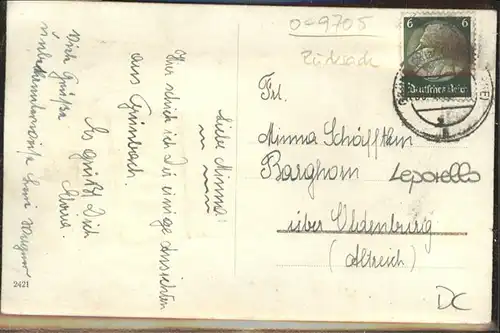 Liebe Minna!
Hier schick ich Dir einige Ansichten
aus Grünbach.
Es grüßt Dich
Maria.
Viele Grüße
0-9705
6 6
Deutsches Reich
Frl.
Minna
Barghorn
Leporello
über Oldenburg
(Altreich)
DC
2421